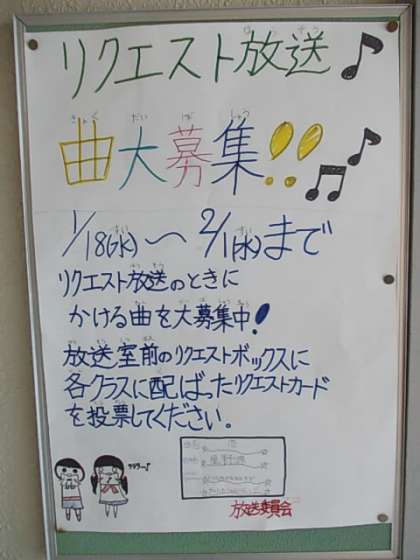 リクエスト放送
曲大募集!!
1/18(水)〜2/1(水)まで
リクエスト放送のときに
かける曲を大募集中!
放送室前のリクエストボックスに
各クラスに配ばったリクエストカード
を投票してください。
放送委員会